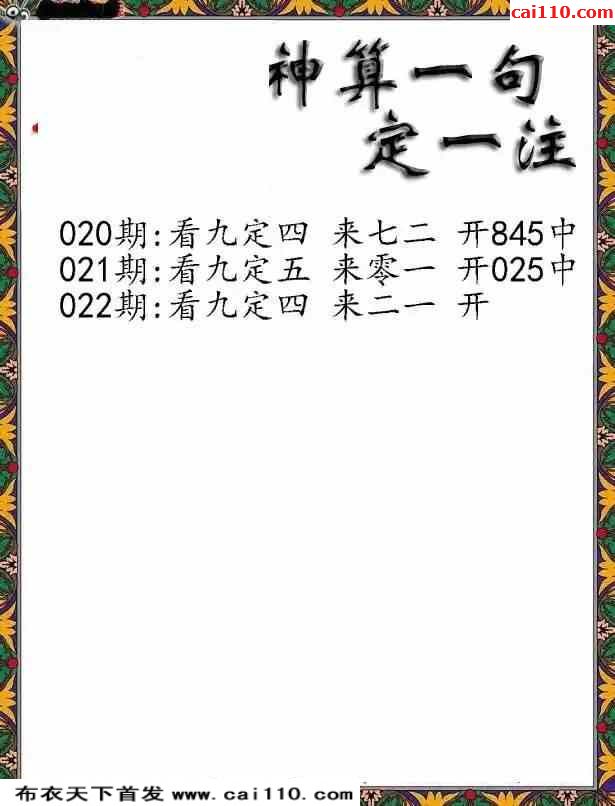 cai110.com
神算一句
定一注
020期:看九定四 来七二 开845中
021期:看九定五 来零一 开025中
022期:看九定四 来二一 开
布衣天下首发 www.cai110.com